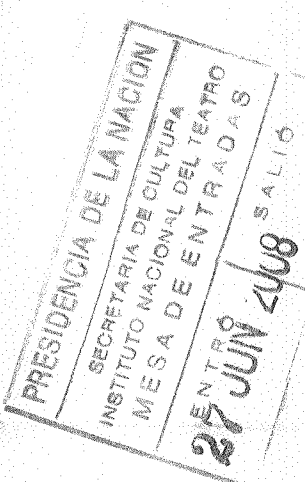 PRESIDENCIA DE LA NACION
SECRETARIA DE CULTURA
INSTITUTO NACIONAL DEL TEATRO
MESA DE ENTRADAS
ENTRÓ SALIÓ
27 JUN 2008